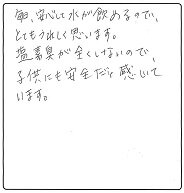 毎日、安心して水が飲めるので、
とてもうれしく思います。
塩素臭が全くしないので、
子供にも安全だと感じて
います。